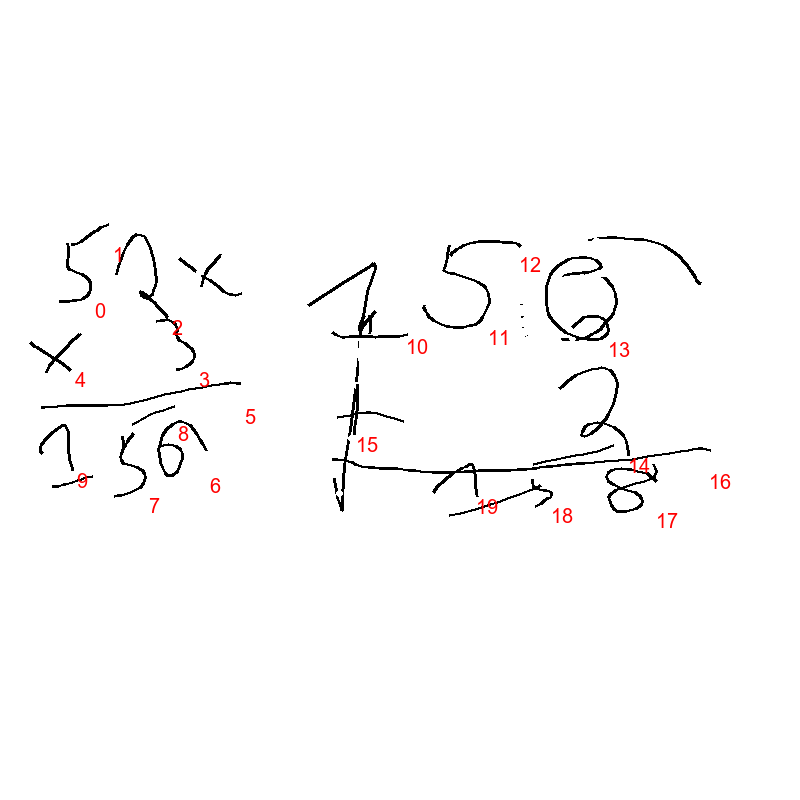 52 x
x 3
156
156
+ 2
158
0 1 2 3 4 5 6 7 8 9 10 11 12 13 14 15 16 17 18 19